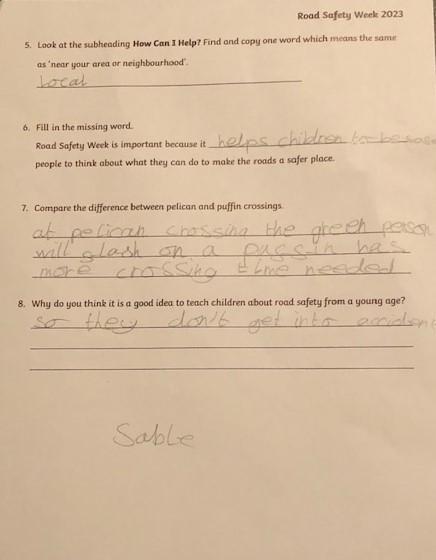 Road Safety Week 2023
5. Look at the subheading How Can I Help? Find and copy one word which means the same
as 'near your area or neighbourhood'.
Local
6. Fill in the missing word.
Road Safety Week is important because it helps children to be
people to think about what they can do to make the roads a safer place.
7. Compare the difference between pelican and puffin crossings.
at pelican crossing the green person
will on a has
more crossing time needed
8. Why do you think it is a good idea to teach children about road safety from a young age?
so they don't get into
Sable